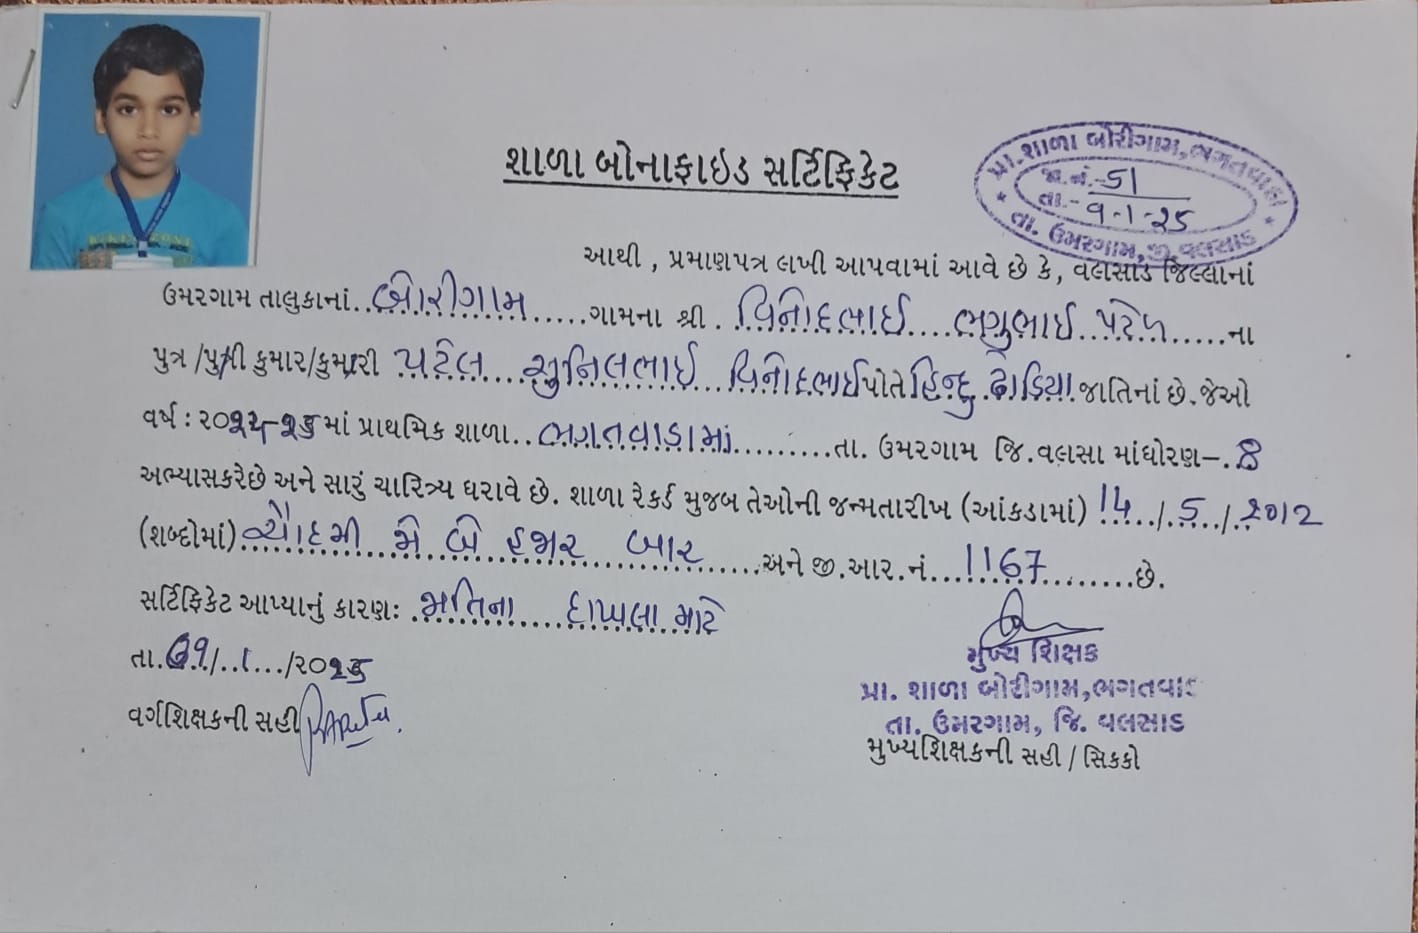 શાળા બોનાફાઇડ સર્ટિફિકેટ
પ્રા. શાળા બોરીગામ, ભગતવાડા
જા.નં.-51
તા.-9-1-25
તા. ઉમરગામ, જી. વલસાડ
આથી , પ્રમાણપત્ર લખી આપવામાં આવે છે કે, વલસાડ જિલ્લાનાં
ઉમરગામ તાલુકાનાં..બોરીગામ.....ગામના શ્રી . વિનોદભાઈ....ભગુભાઈ પટેલ.....ના
પુત્ર /પુત્રી કુમાર/કુમારી પટેલ....સુનિલભાઈ...વિનોદભાઈ પોતે હિન્દુ ઢોડિયા જાતિનાં છે.જેઓ
વર્ષ : ૨૦૨૪-૨૫ માં પ્રાથમિક શાળા..ભગતવાડામાં.........તા. ઉમરગામ જિ.વલસા માંધોરણ–.8
અભ્યાસકરેછે અને સારું ચારિત્ર્ય ધરાવે છે. શાળા રેકર્ડ મુજબ તેઓની જન્મતારીખ (આંકડામાં) 14../.5../..2012
(શબ્દોમાં) ચૌદમી મે બે હજાર બાર......અને જી.આર.નં...1167........છે.
સર્ટિફિકેટ આપ્યાનું કારણ: જાતિના....દાખલા માટે
તા.09/..1.../૨૦૨૫
મુખ્ય શિક્ષક
પ્રા. શાળા બોરીગામ,ભગતવાડ
વર્ગશિક્ષકની સહી
તા. ઉમરગામ, જિ. વલસાડ
મુખ્યશિક્ષકની સહી / સિકકો